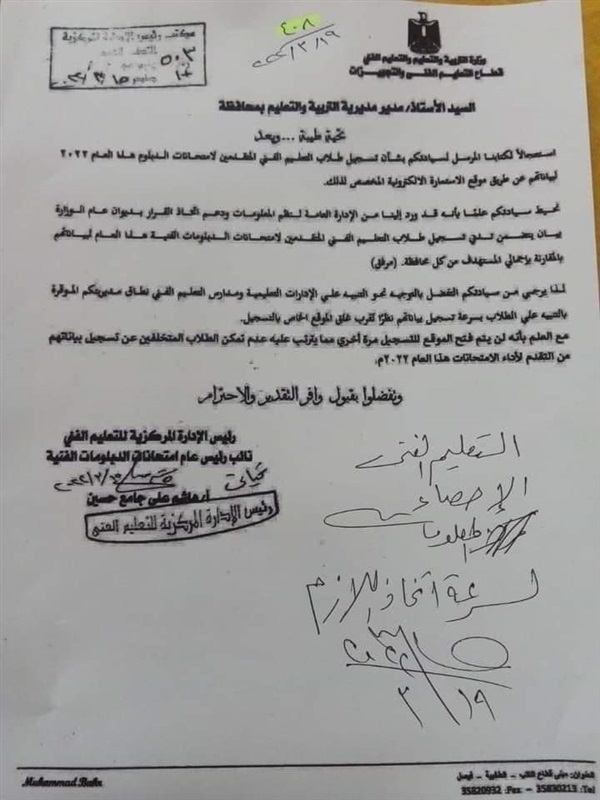 وزارة التربية والتعليم والتعليم الفني
قطاع التعليم الفني والتجهيزات
مكتب رئيس الإدارة المركزية
٥٠٣
٤٠٨
٢٠٢٢/٣/١٩
السيد الأستاذ/ مدير مديرية التربية والتعليم بمحافظة
تحية طيبة ... وبعد
استعجالاً لكتابنا المرسل لسيادتكم بشأن تسجيل طلاب التعليم الفني المتقدمين لامتحانات الدبلوم هذا العام ٢٠٢٢
لبياناتهم عن طريق موقع الاستمارة الالكترونية المخصص لذلك.
نحيط سيادتكم علما بأنه قد ورد إلينا من الإدارة العامة لنظم المعلومات ودعم اتخاذ القرار بديوان عام الوزارة
بيان يتضمن تدني تسجيل طلاب التعليم الفني المتقدمين لامتحانات الدبلومات الفنية هذا العام لبياناتهم
بالمقارنة بإجمالي المستهدف من كل محافظة. (مرفق)
لذا يرجي من سيادتكم التفضل بالتوجيه نحو التنبيه علي الإدارات التعليمية ومدارس التعليم الفني نطاق مديريتكم الموقرة
بالتنبيه علي الطلاب بسرعة تسجيل بياناتهم نظرًا لقرب غلق الموقع الخاص بالتسجيل.
مع العلم بأنه لن يتم فتح الموقع للتسجيل مرة أخري مما يترتب عليه عدم تمكن الطلاب المتخلفين عن تسجيل بياناتهم
من التقدم لأداء الامتحانات هذا العام ٢٠٢٢م.
وتفضلوا بقبول وافر التقدير والاحترام
رئيس الإدارة المركزية للتعليم الفني
نائب رئيس عام امتحانات الدبلومات الفنية
أ/ هاشم علي جامع حسين
رئيس الإدارة المركزية للتعليم الفني
التعليم الفني
الإحصاء
المعلومات
لسرعة اتخاذ اللازم
٣/١٩
Muhammad Bakr
العنوان: مبنى قطاع الكتب - الطالبية - فيصل
Tel: 35830213 - Fax: 35820932